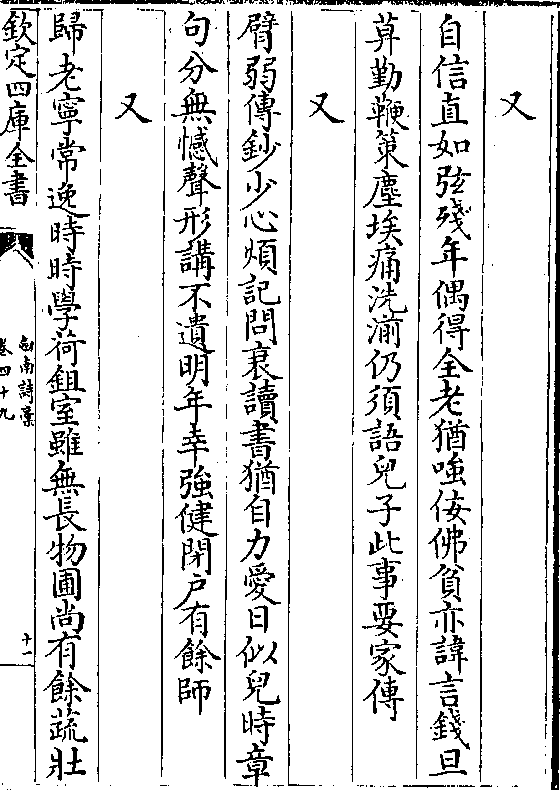 又
自信直如弦殘年偶得全老猶嗤佞佛貧亦諱言錢旦
莫勤鞭策塵埃痛洗湔仍須語兒子此事要家傳
又
臂弱傳鈔少心煩記問衰讀書猶自力愛日似兒時章
句分無憾聲形講不遺明年幸強健閉户有餘師
又
歸老寧常逸時時學荷鉏室雖無長物圃尚有餘蔬壯
欽定四庫全書
劍南詩藁
卷四十九
十一